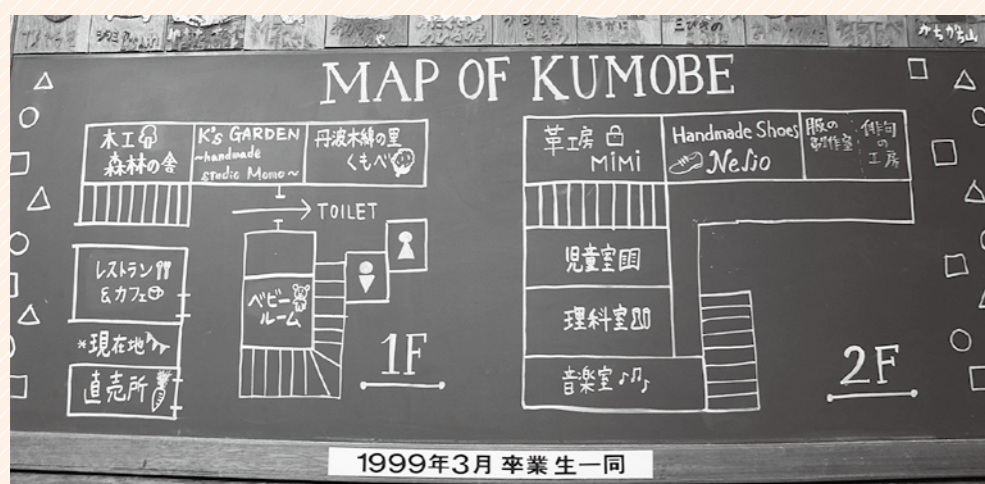 かちかち山
MAP OF KUMOBE
木工
森林の舎
K's GARDEN
~handmade
studio Momo~
丹波木綿の里
くもべ
TOILET
レストラン
&カフェ
ベビー
ルーム
*現在地
直売所
1F
革工房
MiMi
Handmade Shoes
Nelio
服の
制作室
俳句
の
工房
児童室
理科室
音楽室
2F
1999年3月 卒業生一同